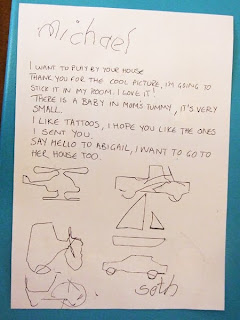 Michael
I WANT TO PLAY BY YOUR HOUSE
THANK YOU FOR THE COOL PICTURE, I'M GOING TO
STICK IT IN MY ROOM. I LOVE IT!
THERE IS A BABY IN MOM'S TUMMY, IT'S VERY
SMALL.
I LIKE TATTOOS, I HOPE YOU LIKE THE ONES
I SENT YOU.
SAY HELLO TO ABIGAIL, I WANT TO GO TO
HER HOUSE TOO.
seth